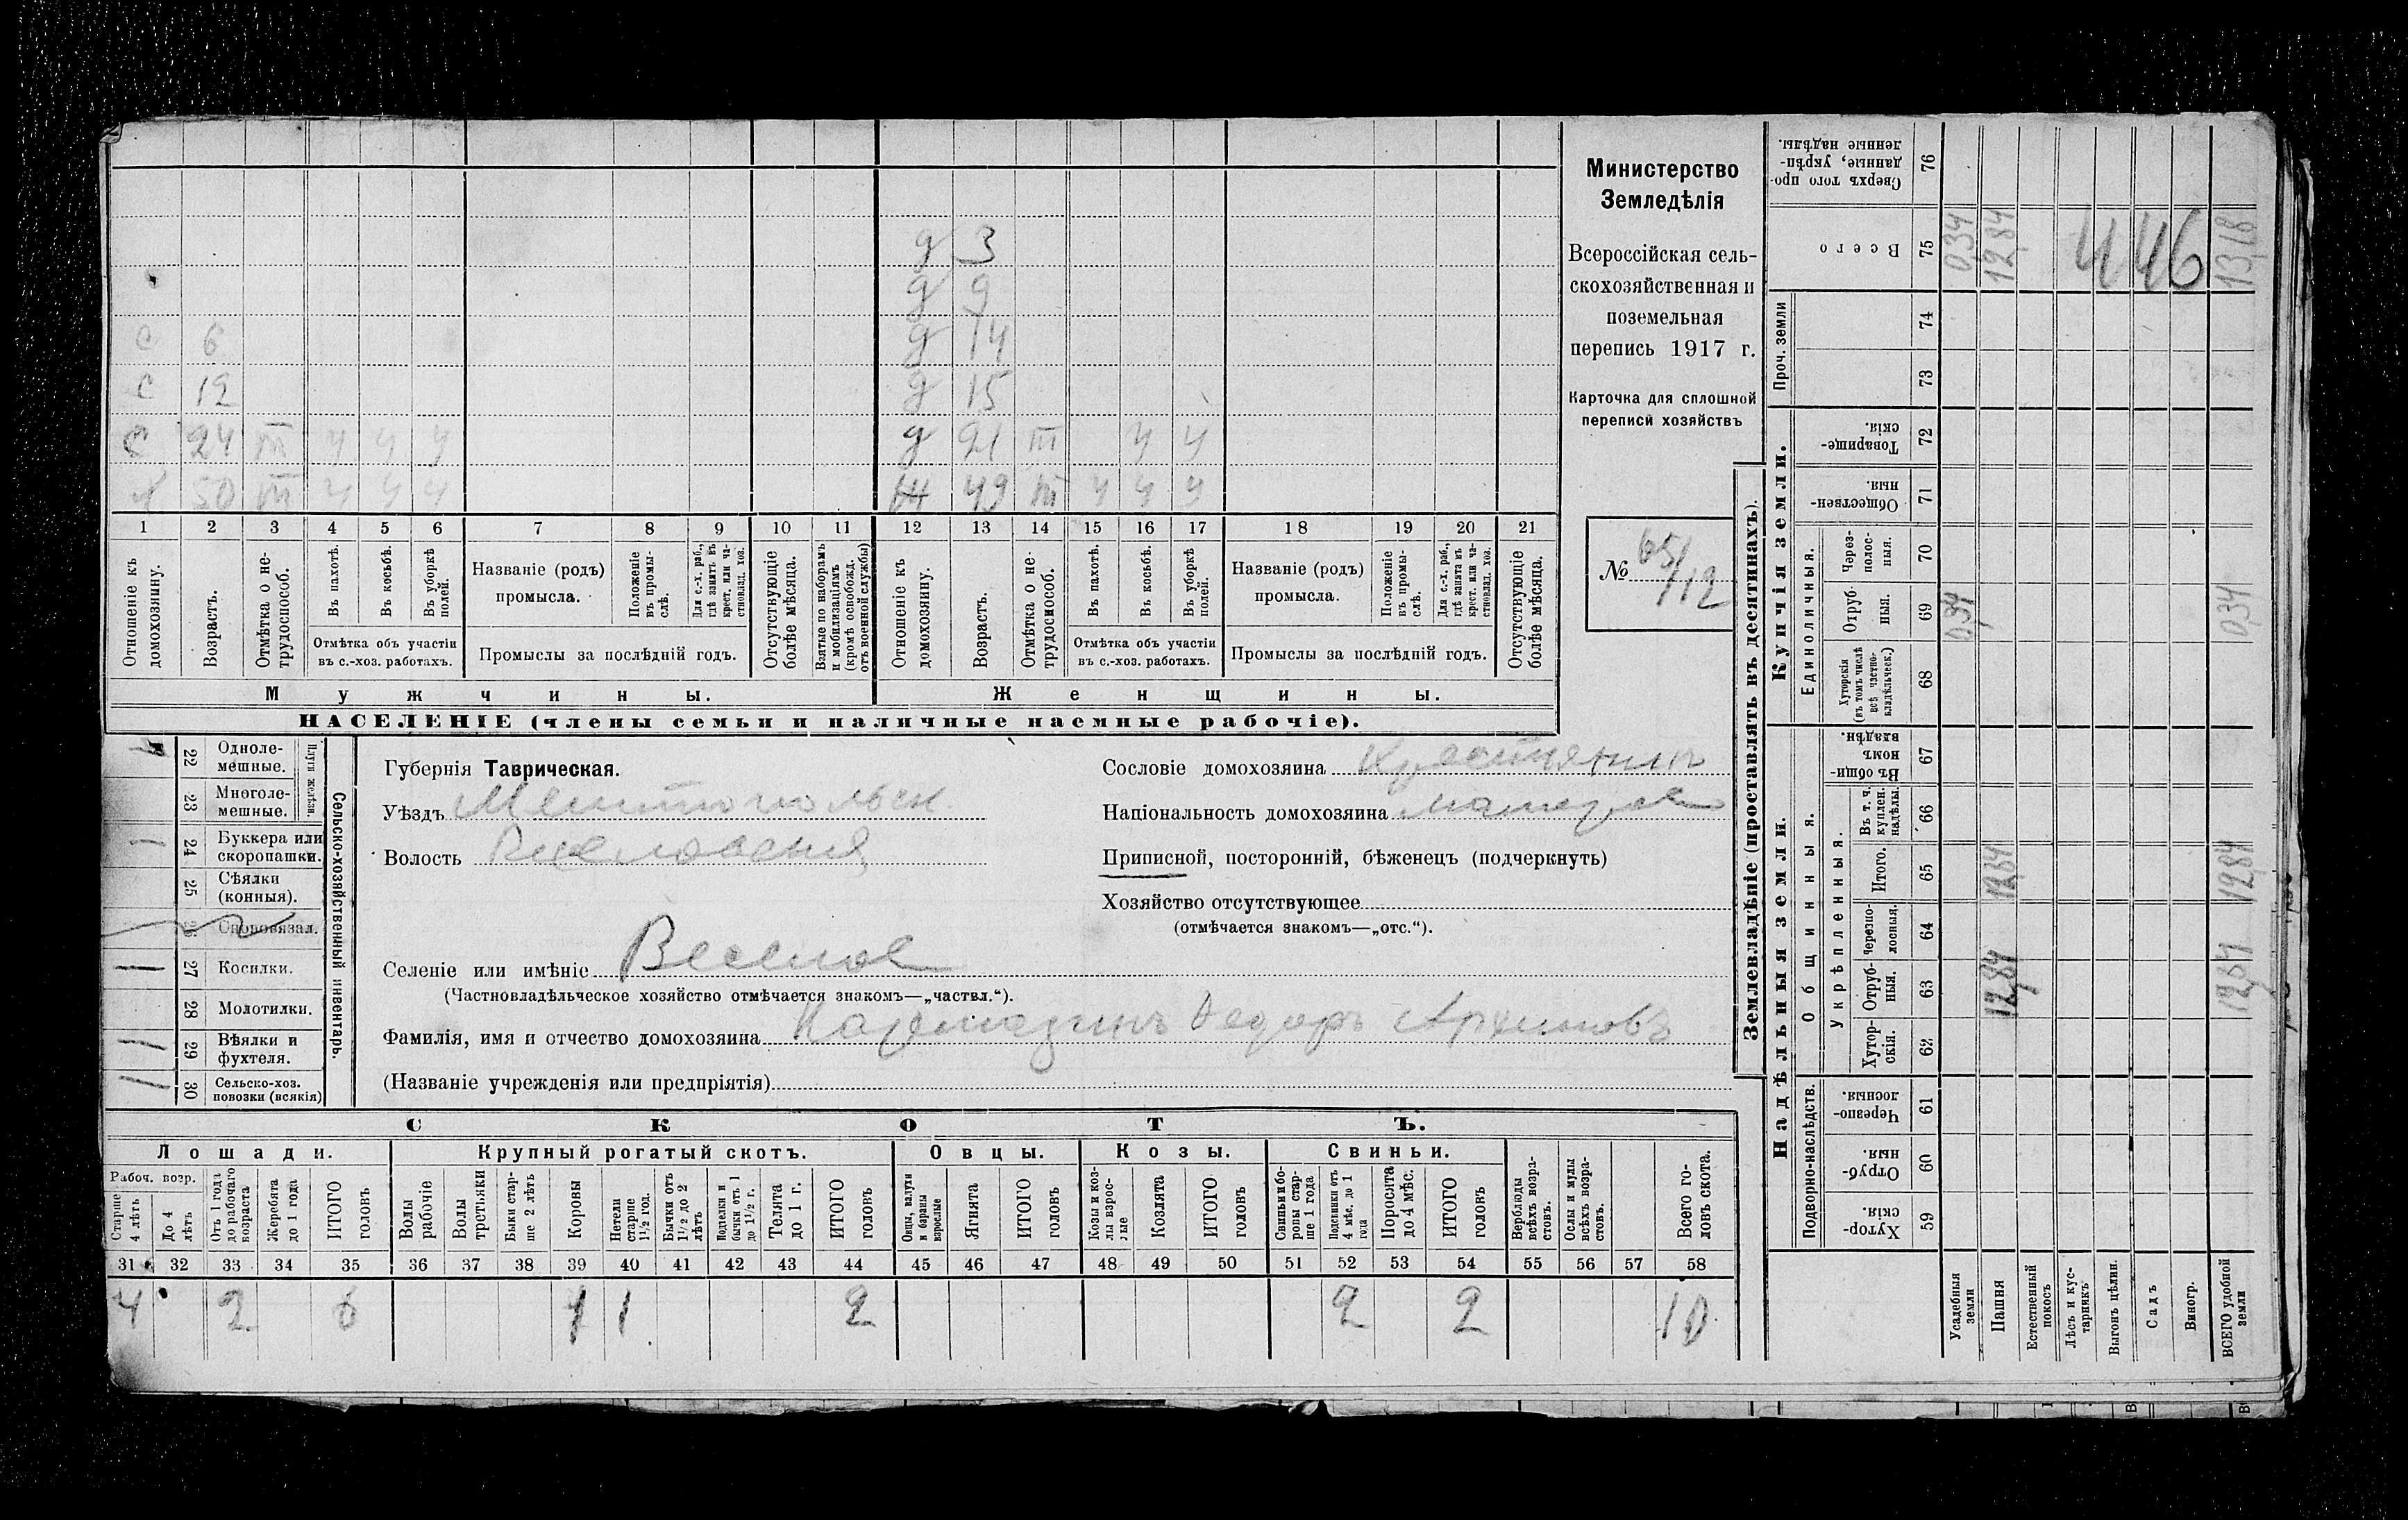 Министерство
Земледѣлія
Всероссійская сель-
скохозяйственная и
поземельная
перепись 1917 г.
Карточка для сплошной
переписи хозяйствъ
№ 651/112
д 3
д 9
с 6 д 14
с 12 д 15
с 24 m ч ч ч д 21 m ч ч
х 50 m ч ч ч ж 49 m ч ч ч
1 2 3 4 5 6 7 8 9 10 11 12 13 14 15 16 17 18 19 20 21
Отношеніе къ домохозяину.
Возрастъ.
Отмѣтка о не-трудоспособ.
Въ пахотѣ.
Въ косьбѣ.
Въ уборкѣ полей.
Отмѣтка объ участіи
въ с.-хоз. работахъ.
Названіе (родъ)
промысла.
Положеніе въ промы-слѣ.
Для с.-х. раб., гдѣ занятъ въ крест. или ча-стновлад. хоз.
Промыслы за послѣдній годъ.
Отсутствующіе болѣе мѣсяца.
Взятые по наборамъ и мобилизаціямъ (кромѣ освобожд. отъ военной службы)
Отношеніе къ домохозяину.
Возрастъ.
Отмѣтка о не-трудоспособ.
Въ пахотѣ.
Въ косьбѣ.
Въ уборкѣ полей.
Отмѣтка объ участіи
въ с.-хоз. работахъ.
Названіе (родъ)
промысла.
Положеніе въ промы-слѣ.
Для с.-х. раб., гдѣ занята въ крест. или ча-стновлад. хоз.
Промыслы за послѣдній годъ.
Отсутствующіе болѣе мѣсяца.
Мужчины. Женщины.
НАСЕЛЕНІЕ (члены семьи и наличные наемные рабочіе).
Сельско-хозяйственный инвентарь.
Плуги желѣзн.
22 Одноле-мешные.
23 Многоле-мешные.
24 Буккера или скоропашки.
25 Сѣялки (конныя).
26 Сноповязал.
27 Косилки.
28 Молотилки.
29 Вѣялки и фухтеля.
30 Сельско-хоз. повозки (всякія)
Губернія Таврическая.
Уѣздъ Мелитопольск
Волость Веселовская
Селеніе или имѣніе Веселое
(Частновладѣльческое хозяйство отмѣчается знакомъ—„частвл.“).
Фамилія, имя и отчество домохозяина Кармазинъ Федоръ Архиповъ
(Названіе учрежденія или предпріятія)
Сословіе домохозяина Крестьянинъ
Національность домохозяина малорос
Приписной, посторонній, бѣженецъ (подчеркнуть)
Хозяйство отсутствующее
(отмѣчается знакомъ—„отс.“).
СКОТЪ.
Лошади. Крупный рогатый скотъ. Овцы. Козы. Свиньи.
Рабоч. возр.
Старше 4 лѣтъ
До 4 лѣтъ
Отъ 1 года до рабочаго возраста
Жеребята до 1 года
ИТОГО головъ
Волы рабочіе
Волы третьяки
Быки стар-ше 2 лѣтъ
Коровы
Нетели старше 1½ год.
Бычки отъ 1½ до 2 лѣтъ
Подтелки и бычки отъ 1 до 1½ г.
Телята до 1 г.
ИТОГО головъ
Овцы, валухи и бараны взрослые
Ягнята
ИТОГО головъ
Козы и коз-лы взрос-лые
Козлята
ИТОГО головъ
Свиньи и бо-ровы стар-ше 1 года
Подсвинки отъ 4 мѣс. до 1 года
Поросята до 4 мѣс.
ИТОГО головъ
Верблюды всѣхъ возра-стовъ.
Ослы и мулы всѣхъ возра-стовъ.
Всего го-ловъ скота.
31 32 33 34 35 36 37 38 39 40 41 42 43 44 45 46 47 48 49 50 51 52 53 54 55 56 57 58
4 2 6 1 1 2 2 2 10
Землевладѣніе (проставлять въ десятинахъ).
Надѣльныя земли. Купчія земли. Проч. земли
Подворно-наслѣдств. Общинныя. Единоличныя.
Укрѣпленныя.
Хутор-скія. 59
Отруб-ныя. 60
Черезпо-лосныя. 61
Хутор-скія. 62
Отруб-ныя. 63
Черезпо-лосныя. 64
Итого. 65
Въ т. ч. куплен. надѣлы. 66
Въ общин-номъ владѣн. 67
Хуторскія (въ томъ числѣ всѣ частно-владѣльческ.) 68
Отруб-ныя. 69
Через-полос-ныя. 70
Обществен-ныя. 71
Товарище-скія. 72
73
74
Всего 75
Сверхъ того про-данные, укрѣп-ленные надѣлы. 76
Усадебныя земли 0,34 0,34
Пашня 12,84 12,84 12,84
Естественный покосъ
Лѣсъ и кус-тарникъ
Выгонъ цѣлин.
Садъ
Виногр.
ВСЕГО удобной земли 12,84 12,84 0,34 13,18
446